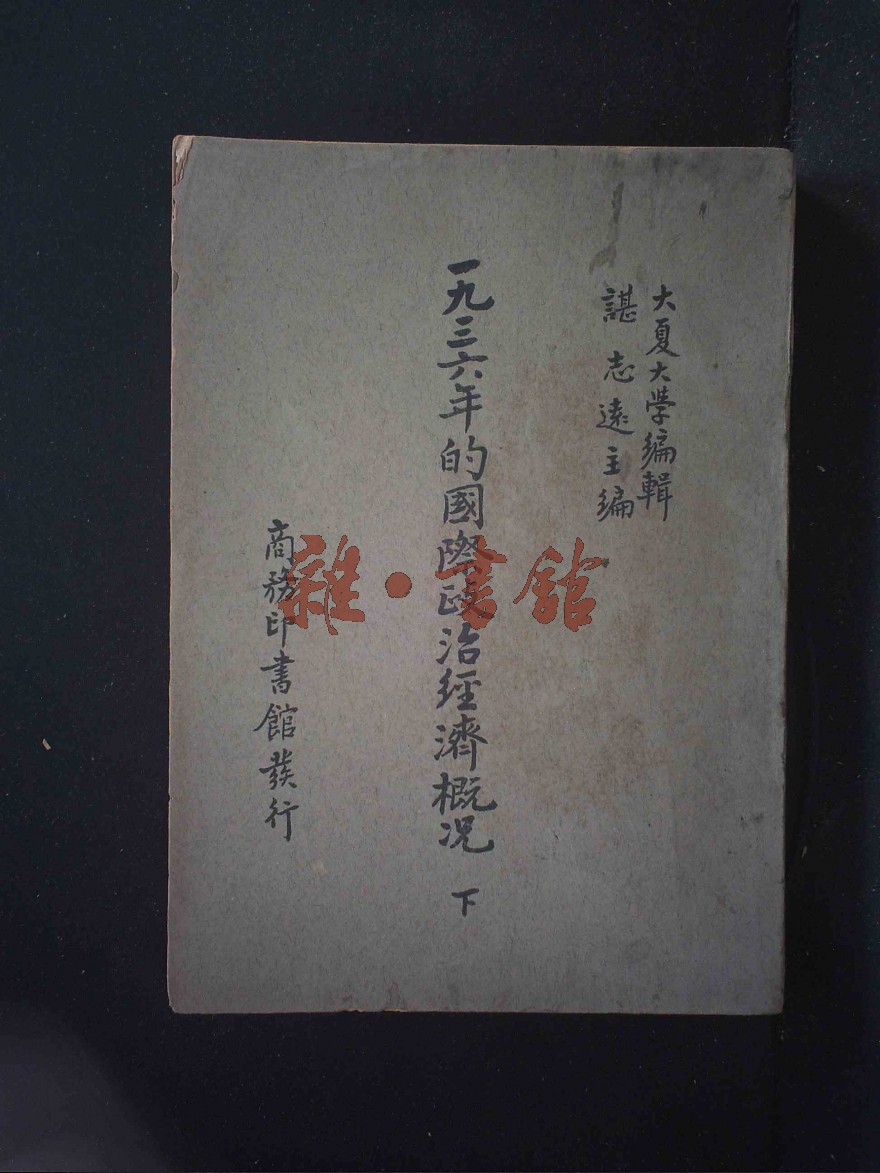 大夏大学編輯
諶志遠主編
一九三六年的國際政治經濟概况 下
商務印書館發行
雜·書館